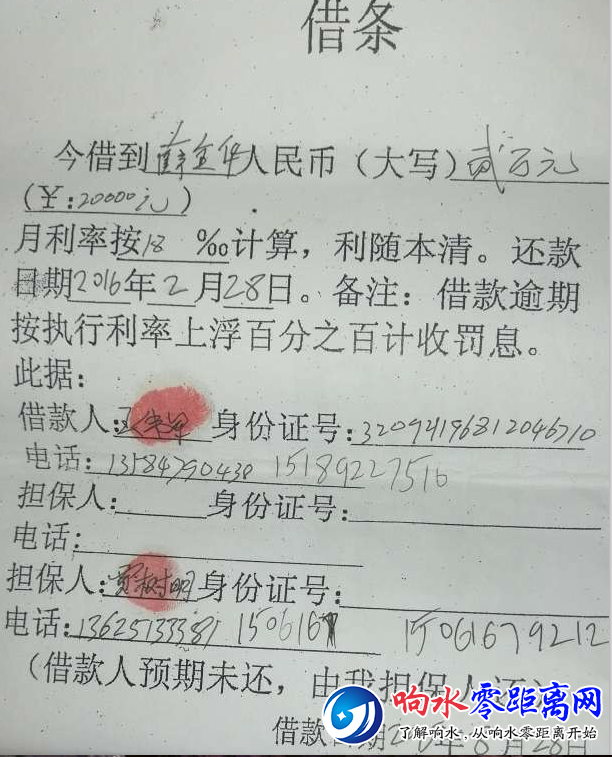 借条
今借到 金华人民币（大写）贰万元
（￥：20000元）
月利率按18‰计算，利随本清。还款
日期2016年2月28日。备注：借款逾期
按执行利率上浮百分之百计收罚息。
此据：
借款人： 身份证号：
电话： 15189227516
担保人： 身份证号：
电话：
担保人：贾树明身份证号：
电话： 150616 15061679212
（借款人预期未还，由我担保人还）
借款日期 年8月28日
响水零距离网
了解响水，从响水零距离开始